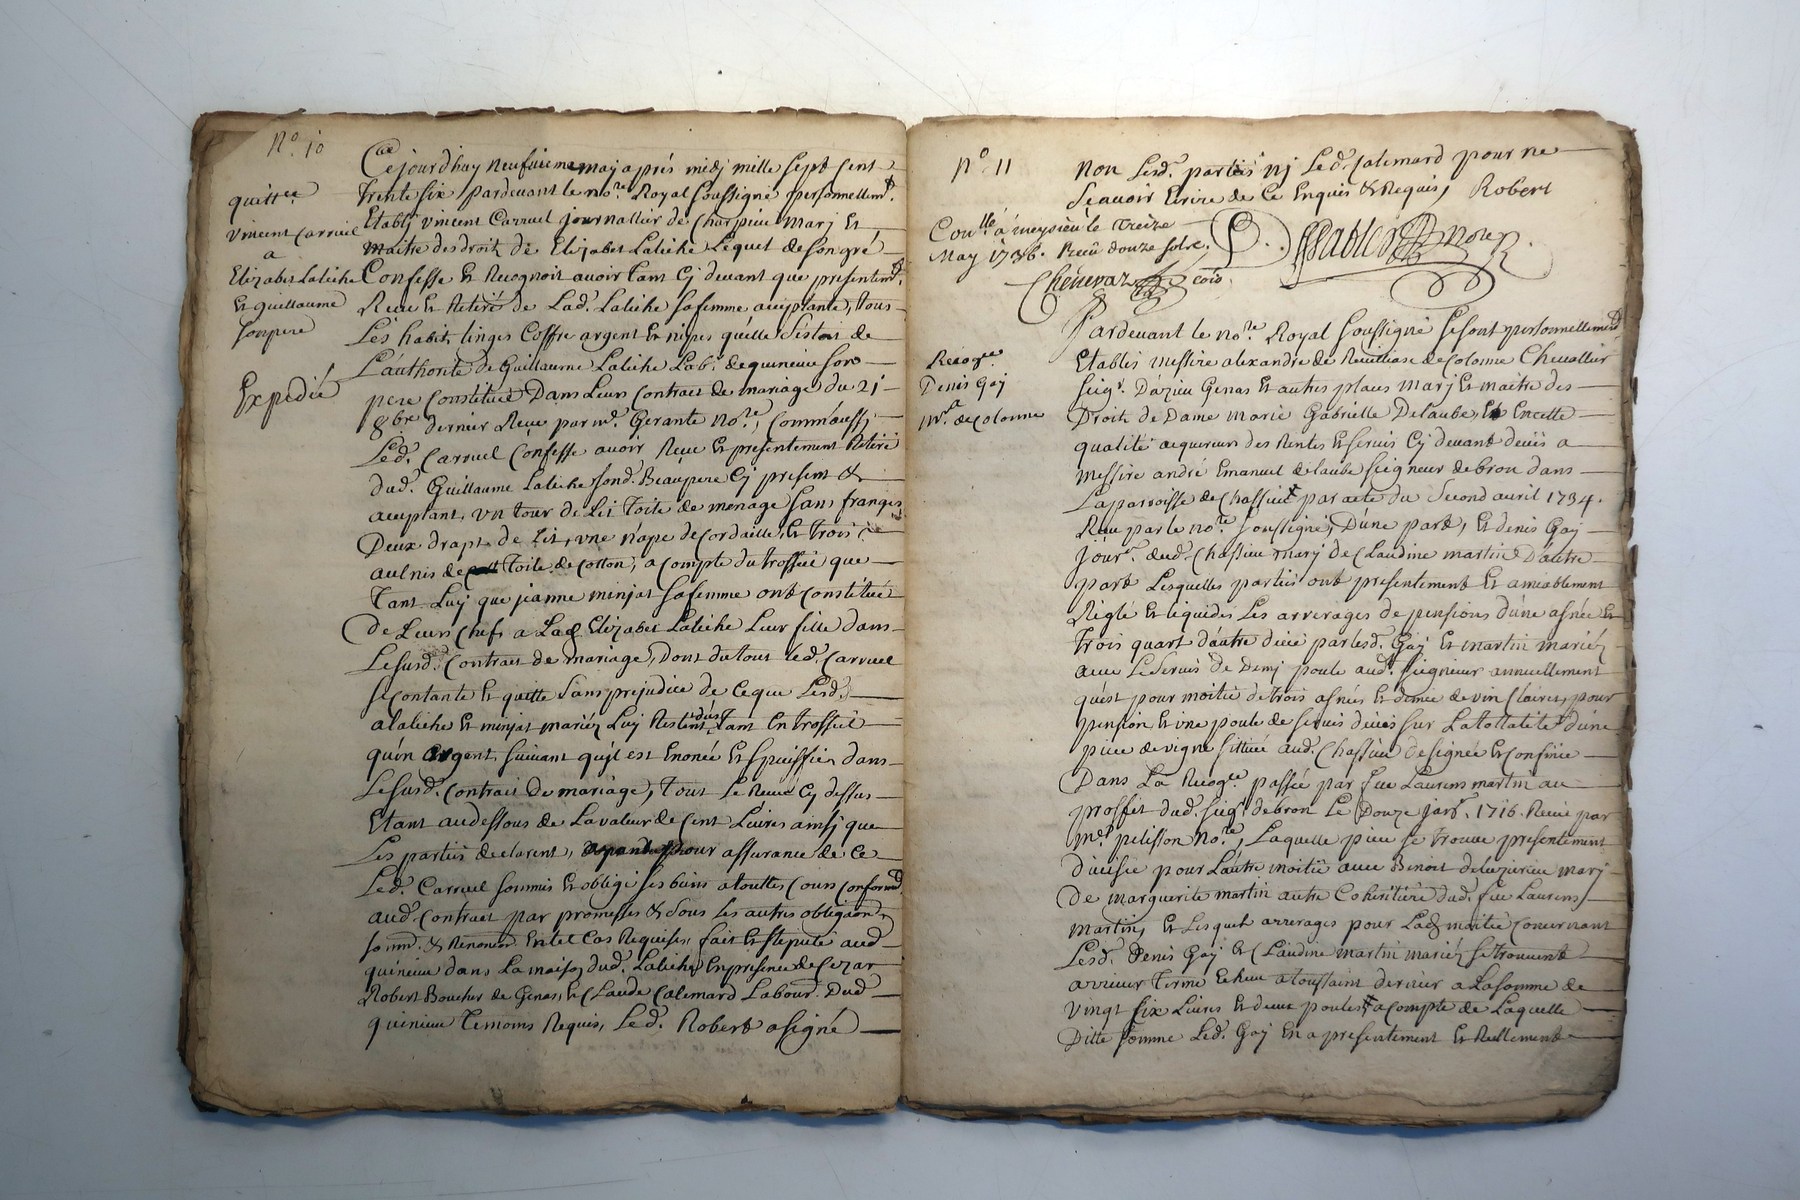 N.° 10
quitt.ce
vincent Carruel
a
Elizabet Laliche
Et guillaume
son pere
Expedié
Cejourdhuy neufvieme may aprés midj mille sept Cent
trente six pardevant le no.re Royal soussigné personnellem.t
Etablj vincent Carruel journallier de Charpieu marj Et
maitre des droits de Elizabet Laliche Lequel de son gré
Confesse Et Recognoit avoir tant Cy devant que presentem.t
Reçu Et Retiré de Lad. Laliche sa femme acceptante, tous
Les habits, linges Coffre argent Et nipes quelle sestoit de
L'authorité de Guillaume Laliche Lab.r de quinieue son
pere Constitué Dans Leur Contract de mariage du 21
8bre dernier Receu par m.e Gerante No.re, Comm'aussj
Led. Carruel Confesse avoir Reçu Et presentement Retiré
dud. Guillaume Laliche sond. Beaupere Cj present &
acceptant, un tour de Lit toile de menage sans franges
Deux draps de Lit, une nape de Cordaille, Et trois
aulnes de toile de Cotton, a Compte du trossel que
tant Luy que jeanne minjat sa femme ont Constitué
De Leurs Chefs a Lad. Elizabet Laliche Leur fille dans
Le susd. Contract de mariage, Dont du tout led. Carruel
se contante Et quitte sans prejudice de Ceque Lesd.
a laliche Et minjat mariéz Luy Restent dus tant En trossel
qu'en argent suivant qu'il est Enoncé Et spéciffié dans
Le susd. Contract de mariage, Tout Le Receu Cy dessus
Etant audessous de La valeur de Cent Livres ainsj que
Les parties declarent, pour assurance de Ce
Led. Carruel soumis Et obligé ses biens a touttes Cours Conformé
aud. Contract par promesses & sous les autres obligaõns
soum. & Renonc.on En tel Cas Requises, fait Et stipulé aud.
quinieue dans La maison dud. Laliche, En presence de Cezar
Robert Boucher de Genas, Et Claude Calemard Labour. Dud.
quinieue Temoins Requis, Led. Robert a signé
N.° 11
non Lesd. parties nj Led. Calemard pour ne
scavoir Ecrire de Ce Enquis & Requis, Robert
Con.lle à meysieu le treize
May 1736. Reçû douze sols.
Chenevaz
Recog.ce
Denis Gaj
a
M.r de Colonne
Pardevant le no.re Royal soussigné se sont personnellement
Etablis messire alexandre de Revilliase de Colonne Chevallier
seig.r Dazieu Genas Et autres places marj Et maitre des
Droits de Dame marie Gabrielle Delaube, Et En cette
qualité acquereur des Rentes Et servis Cj devant deüs a
messire andré Emanuel de laube seigneur de bron dans
La parroisse de Chassieu par acte du second avril 1734.
Receu par le no.re soussigné, D'une part, Et denis Gaj
jour.r dud. Chassieu marj de Claudine martin D'autre
part Lesquelles parties ont presentement Et amiablement
Reglé Et liquidés Les arrerages de pensions d'une asnée Et
trois quart d'autre deüe par lesd. Gaj Et martin mariéz
avec Le servis de Demj poule aud. seigneur annuellement
qu'est pour moitié de trois asnées Et demie de vin Clairet, pour
pension Et une poule de servis deües sur La tottalité d'une
piece de vigne sittuée aud. Chassieu designée Et Confinée
Dans La Recog.ce passée par feu Laurens martin au
proffit dud. seig.r de bron Le Douze jan.r 1716. Receue par
M.e pelisson No.re, Laquelle piece se trouve presentement
divisée pour L'autre moitié avec Benoit marj
De marguerite martin autre Coheritiere dud. feu Laurens
martin, Et Lesquels arrerages pour Lad. moitié Concernant
Lesd. Denis Gaj Et Claudine martin mariéz se trouvent
arriver terme Echeu a toussaint dernier a La somme de
vingt six Livres Et deux poules a compte de Laquelle
Ditte somme Led. Gaj En a presentement Et Reellement